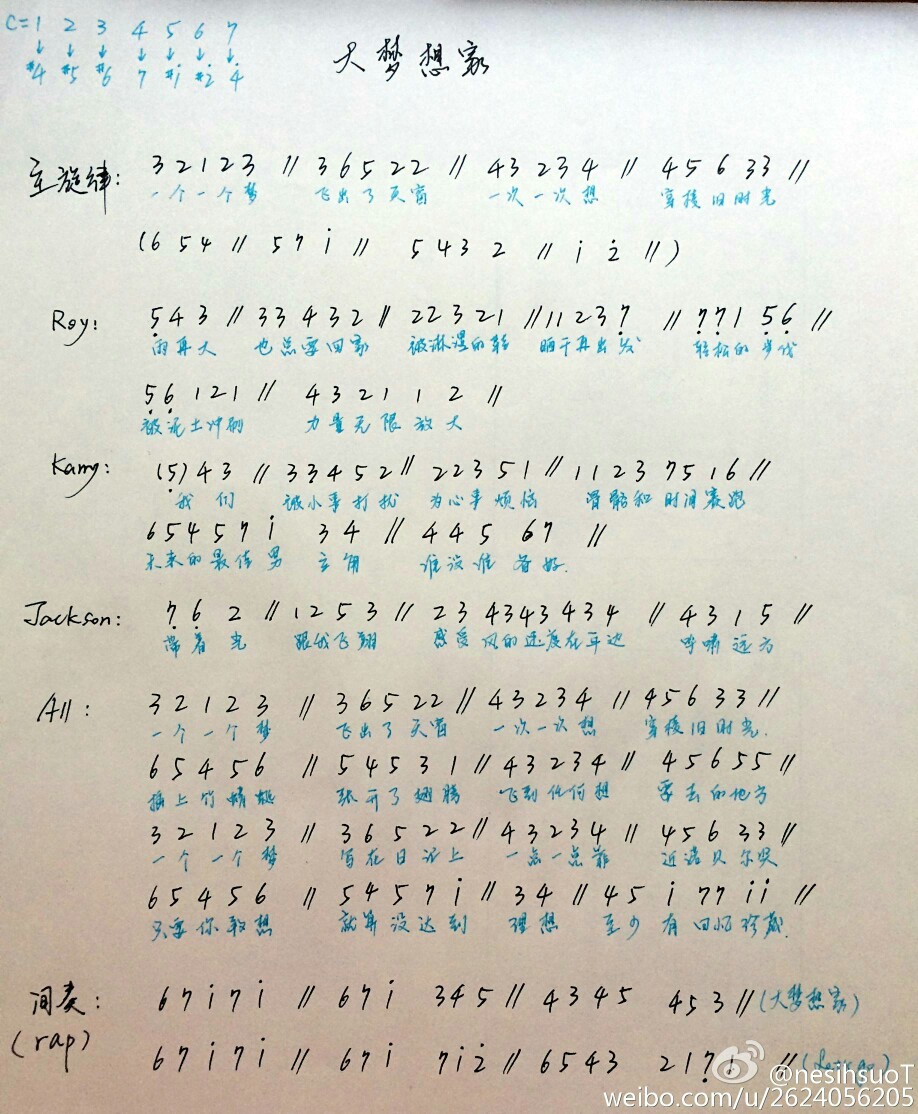 C=1 2 3 4 5 6 7
↓ ↓ ↓ ↓ ↓ ↓ ↓
#4 #5 #6 7 #i #2̇ 4̇
大梦想家
主旋律: 3 2 1 2 3 // 3 6 5 2 2 // 4 3 2 3 4 // 4 5 6 3 3 //
一个一个梦 飞出了天窗 一次一次想 穿梭旧时光
(6 5 4 // 5 7 i // 5 4 3 2 // i 2̇ //)
Roy: 5̣ 4 3 // 3 3 4 3 2 // 2 2 3 2 1 // 1 1 2 3 7̣ // 7̣ 7̣ 1 5̣ 6̣ //
雨再大 也总要回家 被淋湿的鞋 晒干再出发 轻松的步伐
5̣ 6̣ 1 2 1 // 4 3 2 1 1 2 //
被泥土冲刷 力量无限放大
Karry: (5̣) 4 3 // 3 3 4 5 2 // 2 2 3 5 1 // 1 1 2 3 7 5 1 6 //
我们 被小事打扰 为心事烦恼 滑船和时间赛跑
6 5 4 5 7 i 3 4 // 4 4 5 6 7 //
未来的最佳男主角 谁说谁都好.
Jackson: 7̣ 6̣ 2 // 1 2 5 3 // 2 3 4 3 4 3 4 3 4 // 4 3 1 5 //
带着光 跟我飞翔 感受风的速度在耳边 呼啸远方
All: 3 2 1 2 3 // 3 6 5 2 2 // 4 3 2 3 4 // 4 5 6 3 3 //
一个一个梦 飞出了天窗 一次一次想 穿梭旧时光.
6 5 4 5 6 // 5 4 5 3 1 // 4 3 2 3 4 // 4 5 6 5 5 //
插上竹蜻蜓 张开了翅膀 飞到任何想 要去的地方
3 2 1 2 3 // 3 6 5 2 2 // 4 3 2 3 4 // 4 5 6 3 3 //
一个一个梦 写在日记上 一点一点靠 近诺贝尔奖
6 5 4 5 6 // 5 4 5 7 i // 3 4 // 4 5 i 7 7 i i //
只要你敢想 就算没达到 理想 至少有回忆珍藏.
间奏: 6 7 i 7 i // 6 7 i 3 4 5 // 4 3 4 5 4 5 3 // (大梦想家)
(rap) 6 7 i 7 i // 6 7 i 7 i 2̇ // 6 5 4 3 2 1 7̣ 1 //
@nesihsuoT
weibo.com/u/2624056205